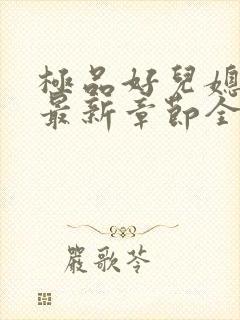 極品好兒媳
最新章節全
嚴歌苓